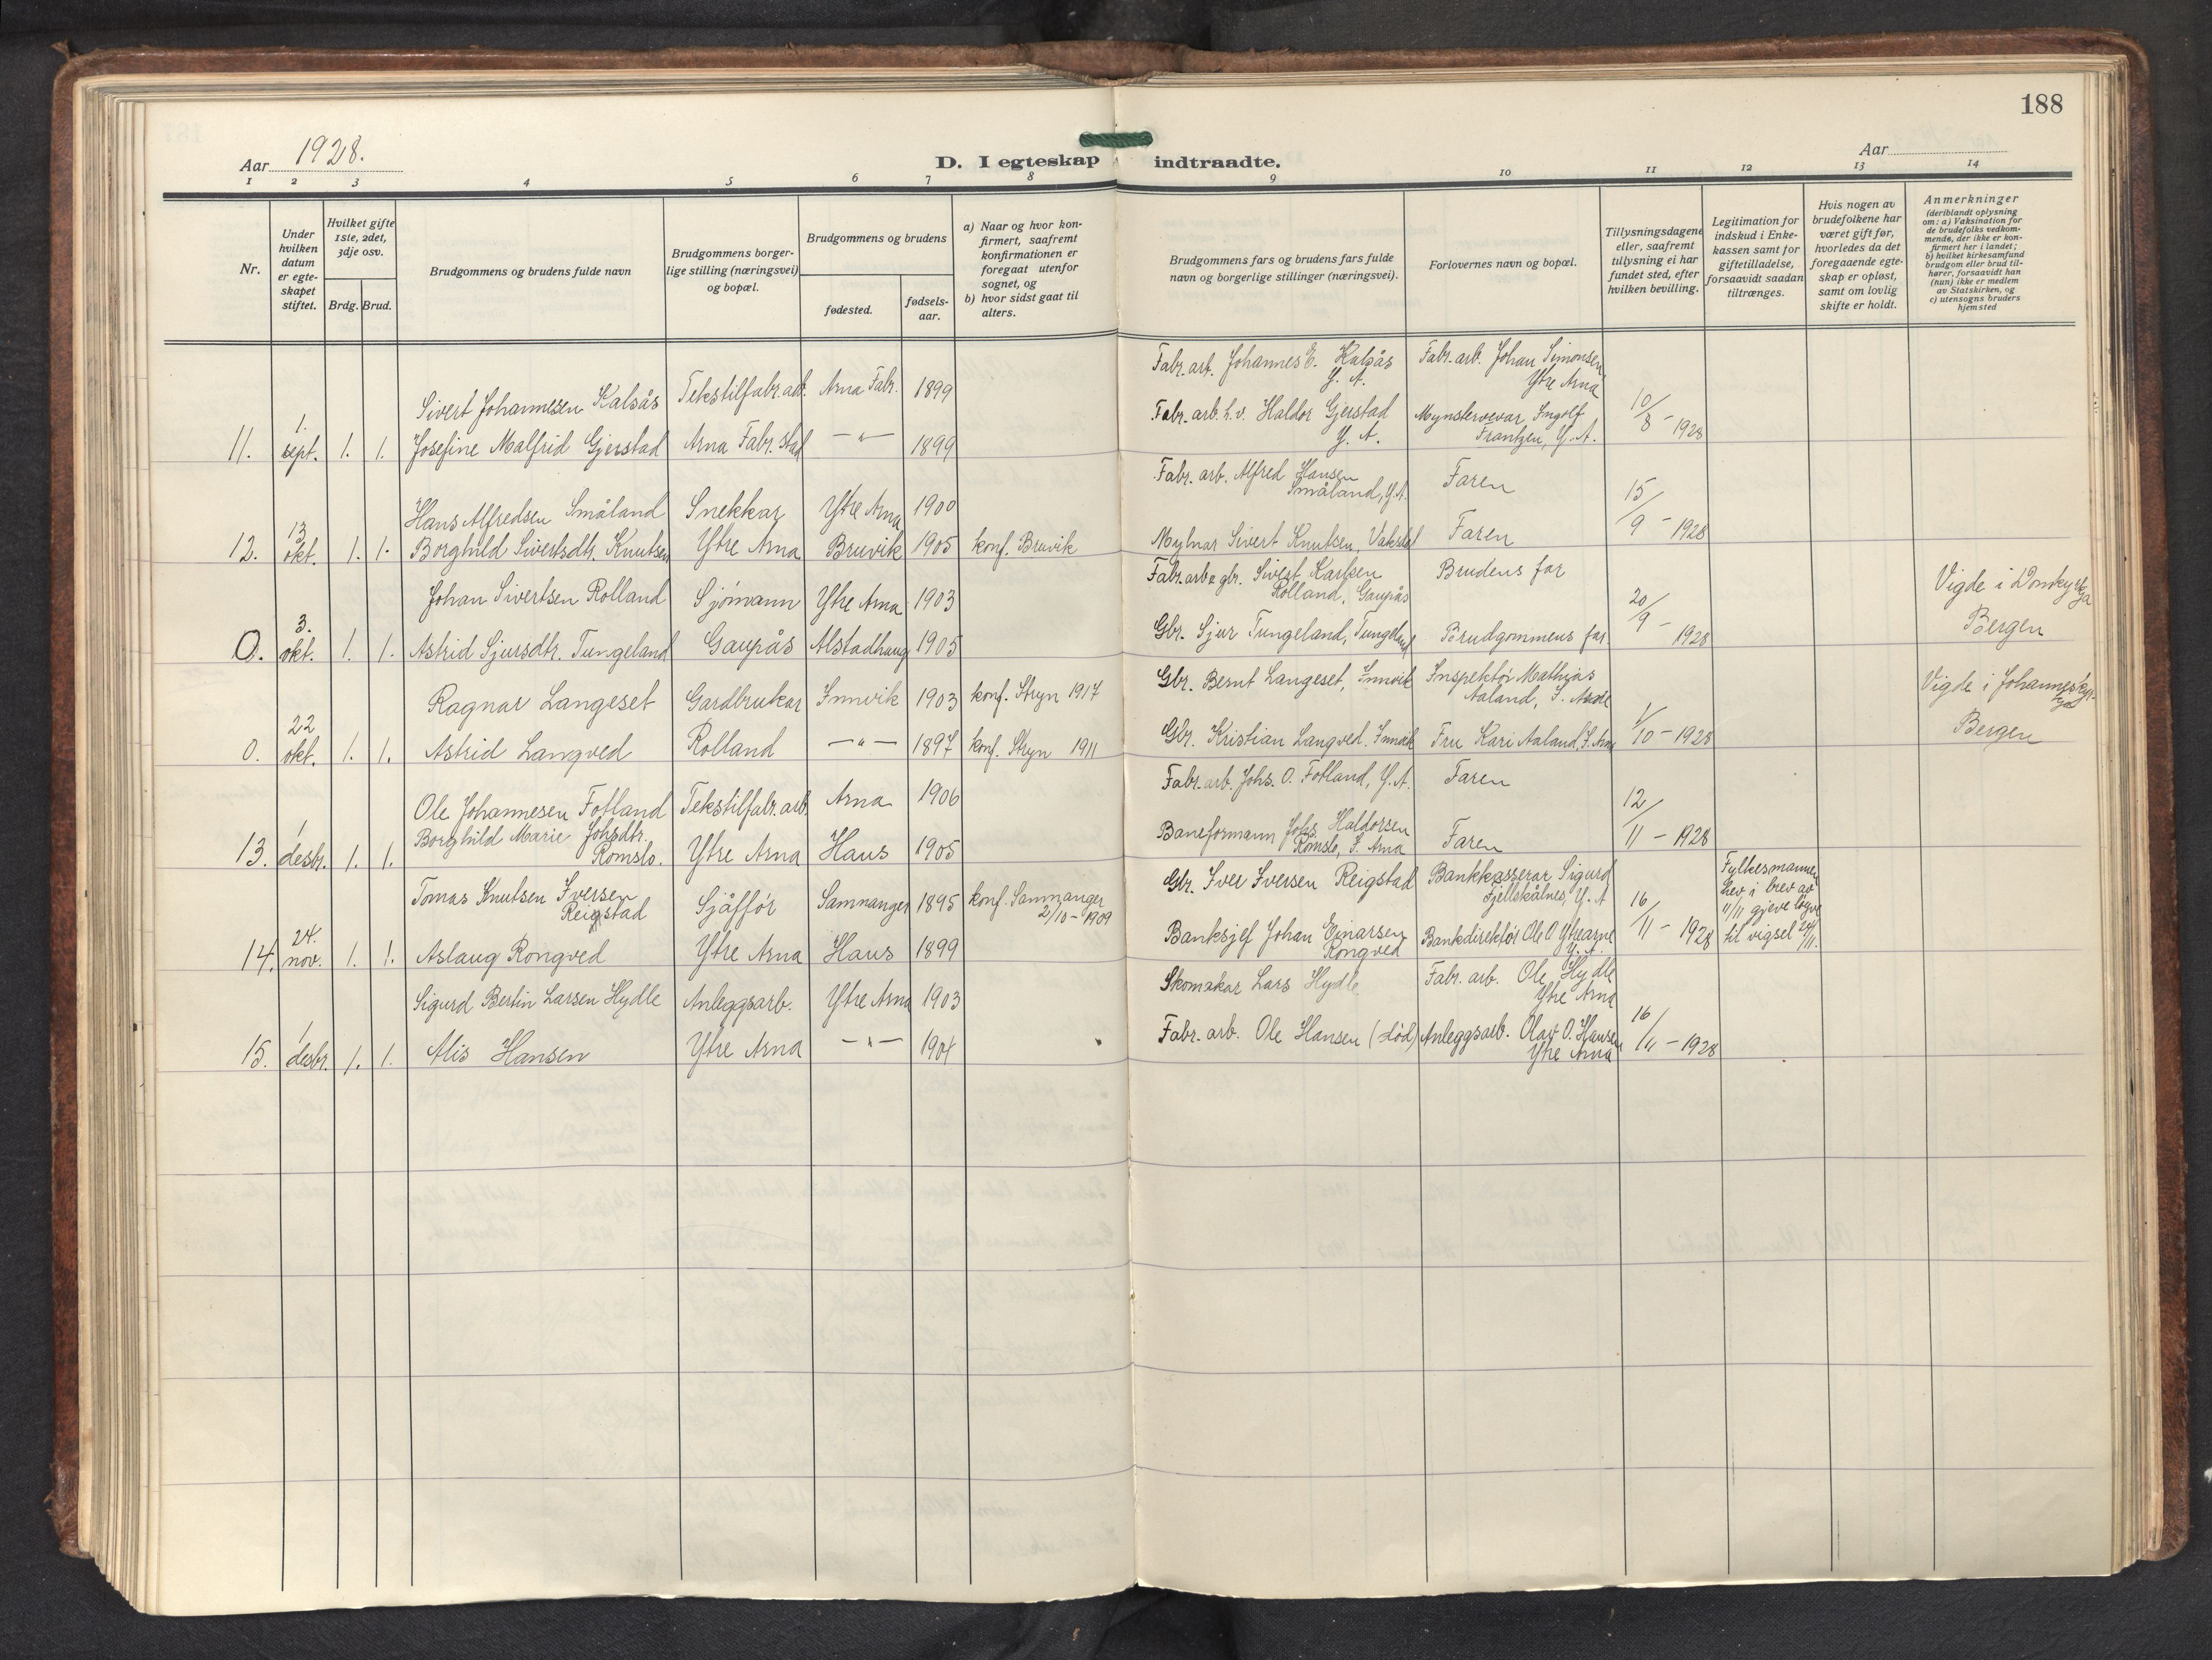 188
Aar 1928.
D. I egteskap indtraadte.
Aar
1 2 3 4 5 6 7 8 9 10 11 12 13 14
Nr.
Under hvilken datum er egteskapet stiftet.
Hvilket gifte 1ste, 2det, 3dje osv.
Brdg. Brud.
Brudgommens og brudens fulde navn
Brudgommens borgerlige stilling (næringsvei) og bopæl.
Brudgommens og brudens
fødested.
fødsels-aar.
a) Naar og hvor konfirmert, saafremt konfirmationen er foregaat utenfor sognet, og
b) hvor sidst gaat til alters.
Brudgommens fars og brudens fars fulde navn og borgerlige stillinger (næringsvei).
Forlovernes navn og bopæl.
Tillysningsdagene eller, saafremt tillysning ei har fundet sted, efter hvilken bevilling.
Legitimation for indskud i Enkekassen samt for giftetilladelse, forsaavidt saadan tiltrænges.
Hvis nogen av brudefolkene har været gift før, hvorledes da det foregaaende egteskap er opløst, samt om lovlig skifte er holdt.
Anmerkninger
(deriblandt oplysning om: a) Vaksination for de brudefolks vedkommende, der ikke er konfirmert her i landet;
b) hvilket kirkesamfund brudgom eller brud tilhører, forsaavidt han (hun) ikke er medlem av Statskirken, og
c) utensogns bruders hjemsted
Sivert Johannesen Kalsås Tekstilfabr.arb. Arna Fabr. 1899 Fabr.arb. Johannes E. Kalsås Y. A. Fabr.arb. Johan Simonsen Ytre Arna
11. 1. sept. 1. 1. Josefine Malfrid Gjerstad Arna Fabr. stad —"— 1899 Fabr.arb. h.v. Haldor Gjerstad Y. A. Mynstervevar Ingolf Frantzen, Y. A. 10/8 - 1928
Hans Alfredsen Småland Snekkar Ytre Arna 1900 Fabr. arb. Alfred Hansen Småland, Y.A. Faren
12. 13 okt. 1. 1. Borghild Sivertsdtr. Knutsen Ytre Arna Bruvik 1905 konf. Bruvik Mylnar Sivert Knutsen, Vaksdal Faren 15/9 - 1928
Johan Sivertsen Rolland Sjømann Ytre Arna 1903 Fabr.arb. & gbr. Sivert Karlsen Rolland, Gaupås Brudens far Vigde i Domkyrkja
0. 3. okt. 1. 1. Astrid Sjursdtr. Tungeland Gaupås Alstadhaug 1905 Gbr. Sjur Tungeland, Tungeland Brudgommens far 20/9 - 1928 Bergen
Ragnar Langeset Gardbrukar Innvik 1903 konf. Stryn 1917 Gbr. Bernt Langeset, Innvik Inspektør Mathias Aaland, I. Arna Vigde i Johanneskyrkja
0. 22 okt. 1. 1. Astrid Langved Rolland —"— 1897 konf. Stryn 1911 Gbr. Kristian Langved, Innvik Fru Kari Aaland, I. Arna 1/10 - 1928 Bergen
Ole Johannesen Fotland Tekstilfabr.arb. Arna 1906 Fabr.arb. Johs. O. Fotland, Y.A. Faren
13. 1 desbr. 1. 1. Borghild Marie Johsdtr. Romslo. Ytre Arna Haus 1905 Baneformann Johs. Haldorsen Romslo, I. Arna Faren 12/11 - 1928
Tomas Knutsen Iversen Reigstad Sjåffør Samnanger 1895 konf. Samnanger 2/10 - 1909 Gbr. Iver Iversen Reigstad Bankkasserar Sigurd Fjellskålnes, Y. A Fylkesmannen hev i brev av 11/11 gjeve løyve til vigsel 24/11.
14. 24. nov. 1. 1. Aslaug Rongved Ytre Arna Haus 1899 Banksjef Johan Einarsen Rongved Bankdirektør Ole O Ytrearne Y. A. 16/11 - 1928
Sigurd Bertin Larsen Hydle Anleggsarb. Ytre Arna 1903 Skomakar Lars Hydle Fabr. arb. Ole Hydle Ytre Arna
15. 1 desbr. 1. 1. Alis Hansen Ytre Arna —"— 1904 Fabr. arb. Ole Hansen (død) Anleggsarb. Olav O. Hansen Ytre Arna 16/11 - 1928